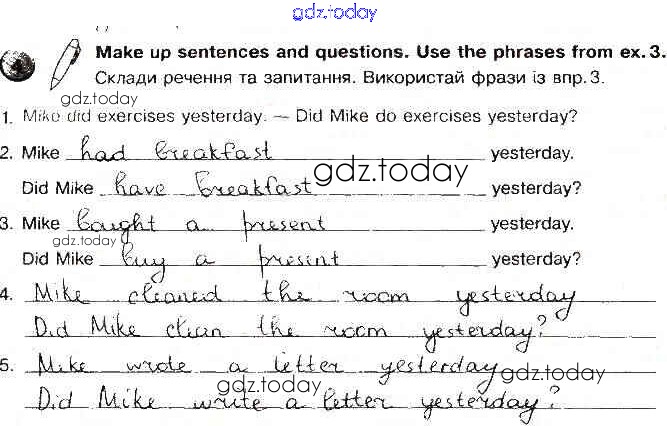 gdz.today
4 Make up sentences and questions. Use the phrases from ex. 3.
Склади речення та запитання. Використай фрази із впр. 3.
gdz.today
1. Mike did exercises yesterday. – Did Mike do exercises yesterday?
2. Mike had breakfast yesterday.
gdz.today
Did Mike have breakfast yesterday?
3. Mike bought a present yesterday.
gdz.today
Did Mike buy a present yesterday?
4. Mike cleaned the room yesterday
Did Mike clean the room yesterday?
5. Mike wrote a letter yesterday
gdz.today
gdz.today
Did Mike write a letter yesterday?